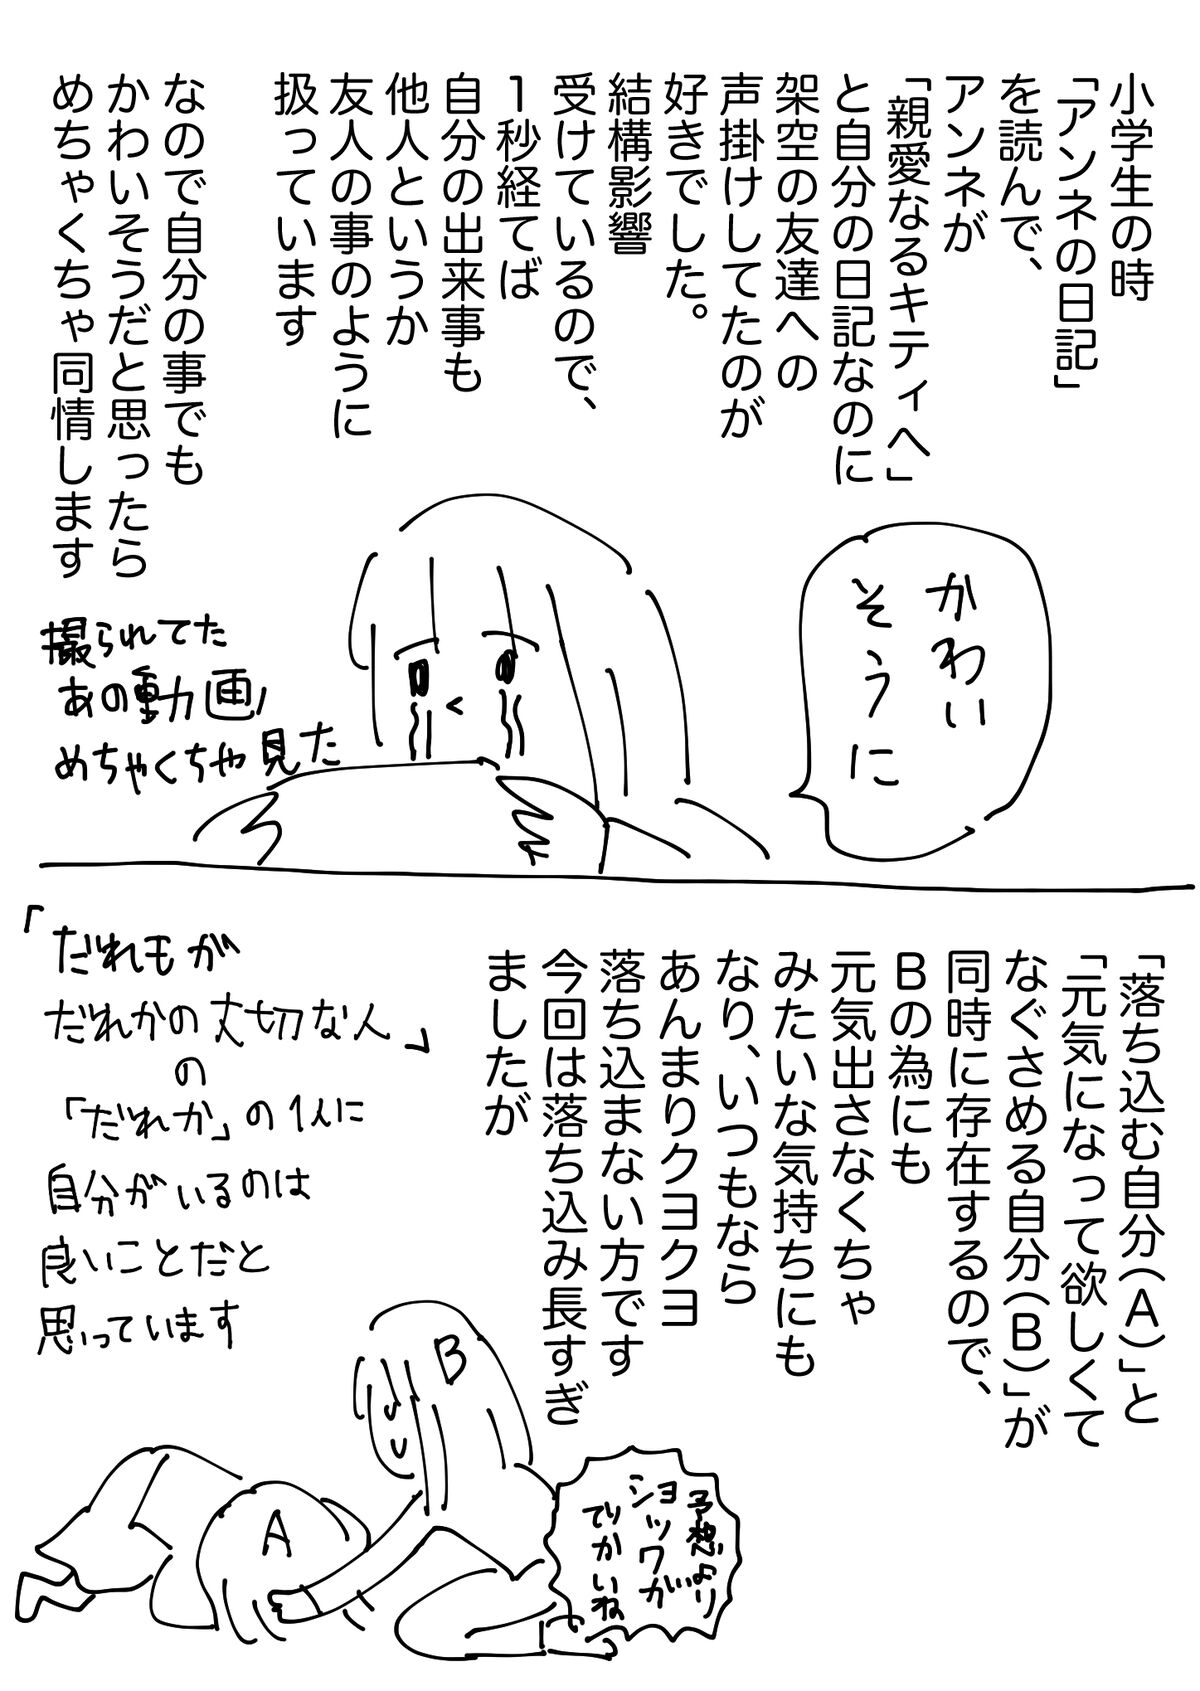 小学生の時
「アンネの日記」
を読んで、
アンネが
「親愛なるキティへ」
と自分の日記なのに
架空の友達への
声掛けしてたのが
好きでした。
結構影響
受けているので、
１秒経てば
自分の出来事も
他人というか
友人の事のように
扱っています
なので自分の事でも
かわいそうだと思ったら
めちゃくちゃ同情します
かわい
そうに
撮られてた
あの動画
めちゃくちゃ見た
「落ち込む自分(Ａ)」と
「元気になって欲しくて
なぐさめる自分(Ｂ)」が
同時に存在するので、
Ｂの為にも
元気出さなくちゃ
みたいな気持ちにも
なり、いつもなら
あんまりクヨクヨ
落ち込まない方です
今回は落ち込み長すぎ
ましたが
「だれもが
だれかの大切な人」
の
「だれか」の1人に
自分がいるのは
良いことだと
思っています
B
A
予想より
ショックが
でかいね